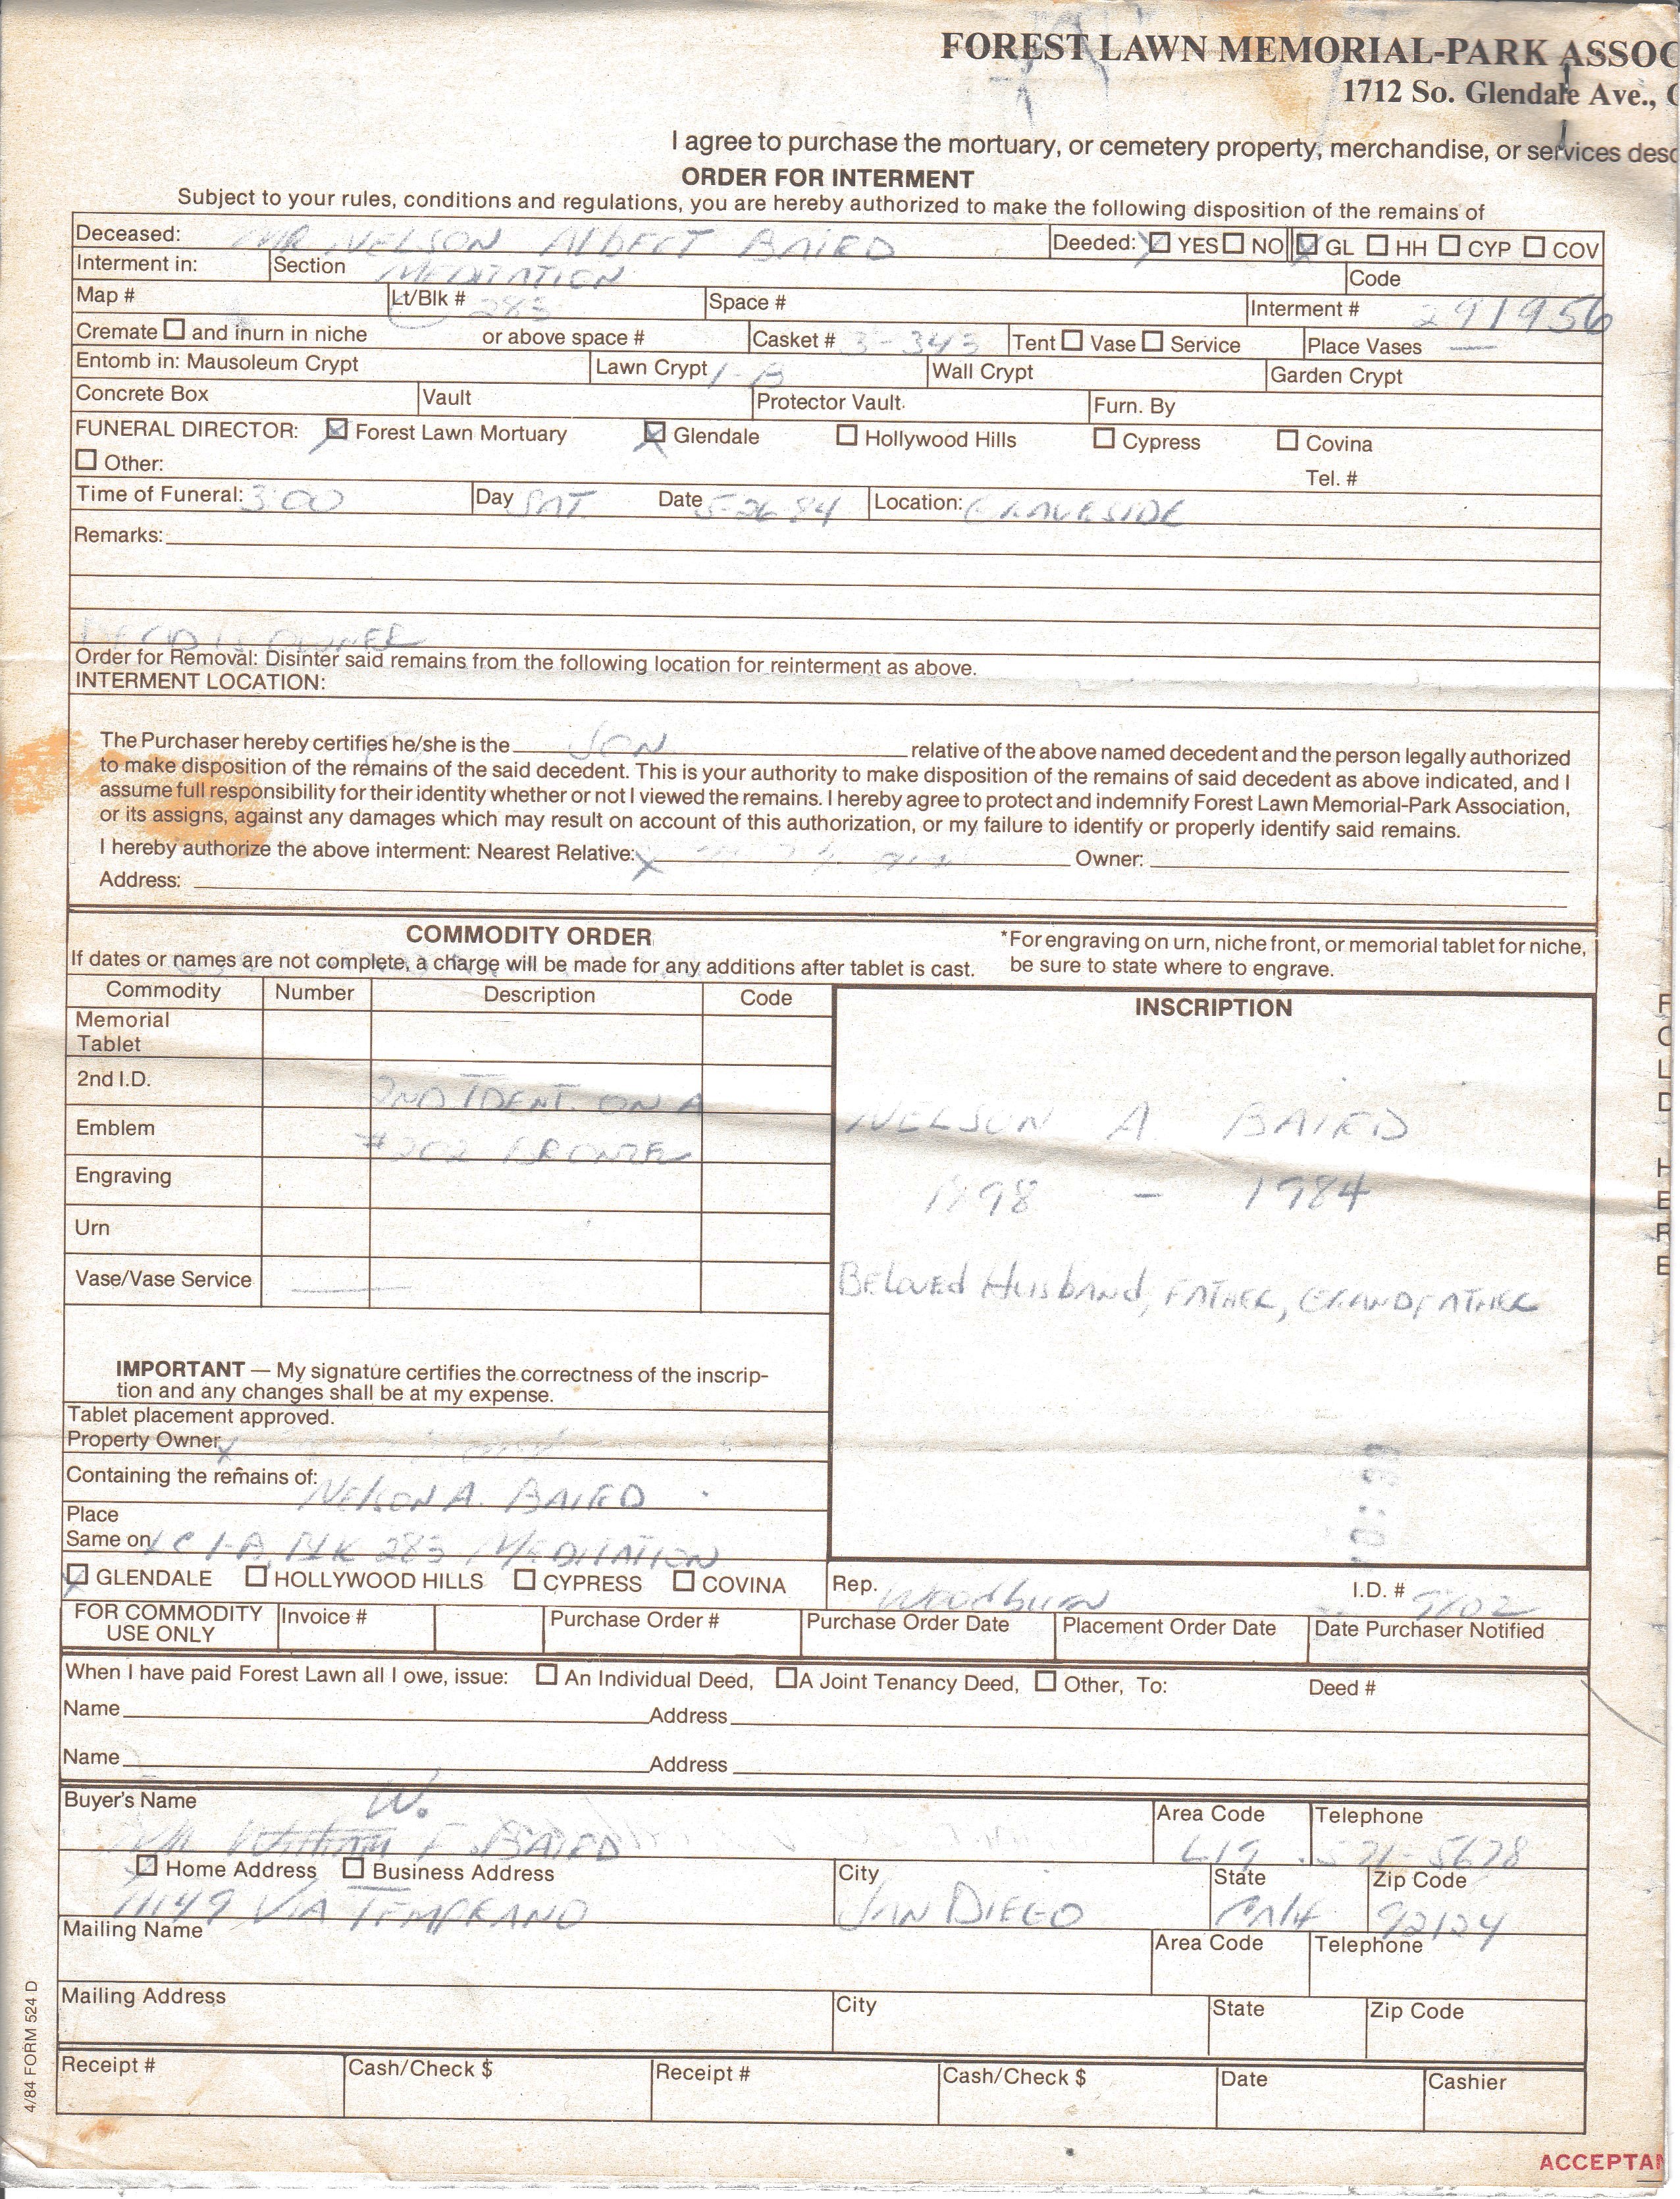 FOREST LAWN MEMORIAL-PARK ASSOC
1712 So. Glendale Ave., G
I agree to purchase the mortuary, or cemetery property, merchandise, or services desc
ORDER FOR INTERMENT
Subject to your rules, conditions and regulations, you are hereby authorized to make the following disposition of the remains of
Deceased: MR NELSON AlbERT BAIRD Deeded: X YES NO X GL HH CYP COV
Interment in: Section MEDITATION Code
Map # Lt/Blk # 285 Space # Interment # 291956
Cremate and inurn in niche or above space # Casket # 3-343 Tent Vase Service Place Vases —
Entomb in: Mausoleum Crypt Lawn Crypt 1-B Wall Crypt Garden Crypt
Concrete Box Vault Protector Vault Furn. By
FUNERAL DIRECTOR: X Forest Lawn Mortuary X Glendale Hollywood Hills Cypress Covina
Other: Tel. #
Time of Funeral: 3:00 Day SAT. Date 5-26 84 Location: GRAVESIDE
Remarks:
IS OWNER
Order for Removal: Disinter said remains from the following location for reinterment as above.
INTERMENT LOCATION:
The Purchaser hereby certifies he/she is the SON relative of the above named decedent and the person legally authorized
to make disposition of the remains of the said decedent. This is your authority to make disposition of the remains of said decedent as above indicated, and I
assume full responsibility for their identity whether or not I viewed the remains. I hereby agree to protect and indemnify Forest Lawn Memorial-Park Association,
or its assigns, against any damages which may result on account of this authorization, or my failure to identify or properly identify said remains.
I hereby authorize the above interment: Nearest Relative: X Owner:
Address:
COMMODITY ORDER
*For engraving on urn, niche front, or memorial tablet for niche,
If dates or names are not complete, a charge will be made for any additions after tablet is cast. be sure to state where to engrave.
Commodity Number Description Code
INSCRIPTION
Memorial
Tablet
2nd I.D. 2ND IDENT. ON A
Emblem #202 BRONZE
NELSON A BAIRD
Engraving
1898 - 1984
Urn
Vase/Vase Service —
BELOVEd HUSbANd, FATHER, GRANDFATHER
IMPORTANT — My signature certifies the correctness of the inscrip-
tion and any changes shall be at my expense.
Tablet placement approved.
Property Owner X
Containing the remains of: NELSON A. BAIRD
Place
Same on LC 1-B, BLK 285 MEDITATION
X GLENDALE HOLLYWOOD HILLS CYPRESS COVINA Rep. Woodburn I.D. # 9102
FOR COMMODITY
USE ONLY
Invoice # Purchase Order # Purchase Order Date Placement Order Date Date Purchaser Notified
When I have paid Forest Lawn all I owe, issue: An Individual Deed, A Joint Tenancy Deed, Other, To: Deed #
Name Address
Name Address
Buyer's Name Area Code Telephone
W.
MR WILLIAM F. BAIRD 619 571-5678
X Home Address Business Address City State Zip Code
11149 VIA TEMPRANO SAN DIEGO Calif 92124
Mailing Name Area Code Telephone
Mailing Address City State Zip Code
Receipt # Cash/Check $ Receipt # Cash/Check $ Date Cashier
4/84 FORM 524 D
FOLD HERE
ACCEPTAN